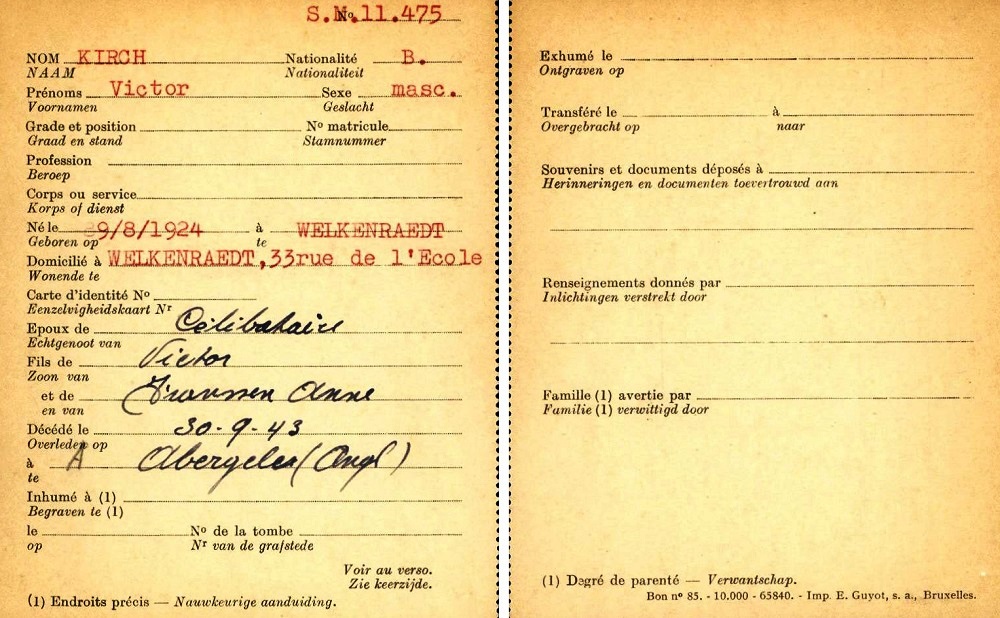 S.M. Nº 11.475
NOM KIRCH Nationalité B.
NAAM Nationaliteit
Prénoms Victor Sexe masc.
Voornamen Geslacht
Grade et position Nº matricule
Graad en stand Stamnummer
Profession
Beroep
Corps ou service
Korps of dienst
Né le 9/8/1924 à WELKENRAEDT
Geboren op te
Domicilié à WELKENRAEDT,33rue de l'Ecole
Wonende te
Carte d'identité Nº
Eenzelvigheidskaart Nr
Epoux de Célibataire
Echtgenoot van
Fils de Victor
Zoon van
et de Anne
en van
Décédé le 30-9-43
Overleden op
à A Abergele (Angl)
te
Inhumé à (1)
Begraven te (1)
le Nº de la tombe
op Nr van de grafstede
Voir au verso.
Zie keerzijde.
(1) Endroits précis — Nauwkeurige aanduiding.
Exhumé le
Ontgraven op
Transféré le à
Overgebracht op naar
Souvenirs et documents déposés à
Herinneringen en documenten toevertrouwd aan
Renseignements donnés par
Inlichtingen verstrekt door
Famille (1) avertie par
Familie (1) verwittigd door
(1) Degré de parenté — Verwantschap.
Bon nº 85. - 10.000 - 65840. - Imp. E. Guyot, s. a., Bruxelles.